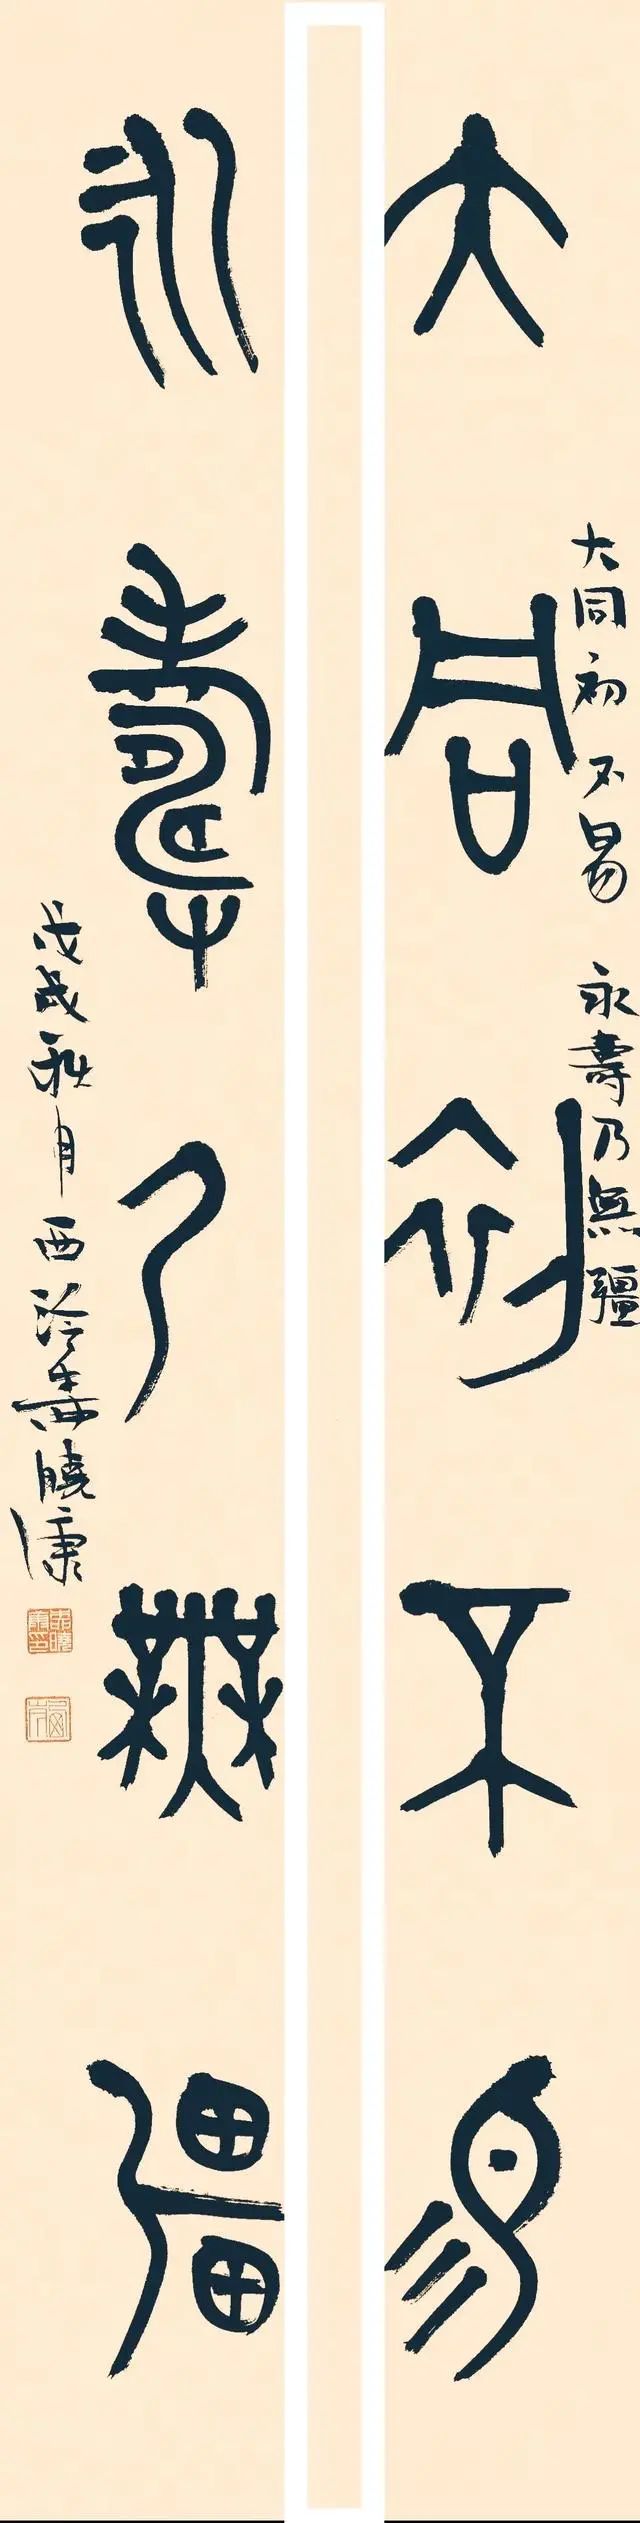 大同初不易 永壽乃無疆
大同初不易
永壽乃無疆
戊戌秋月西泠曉康